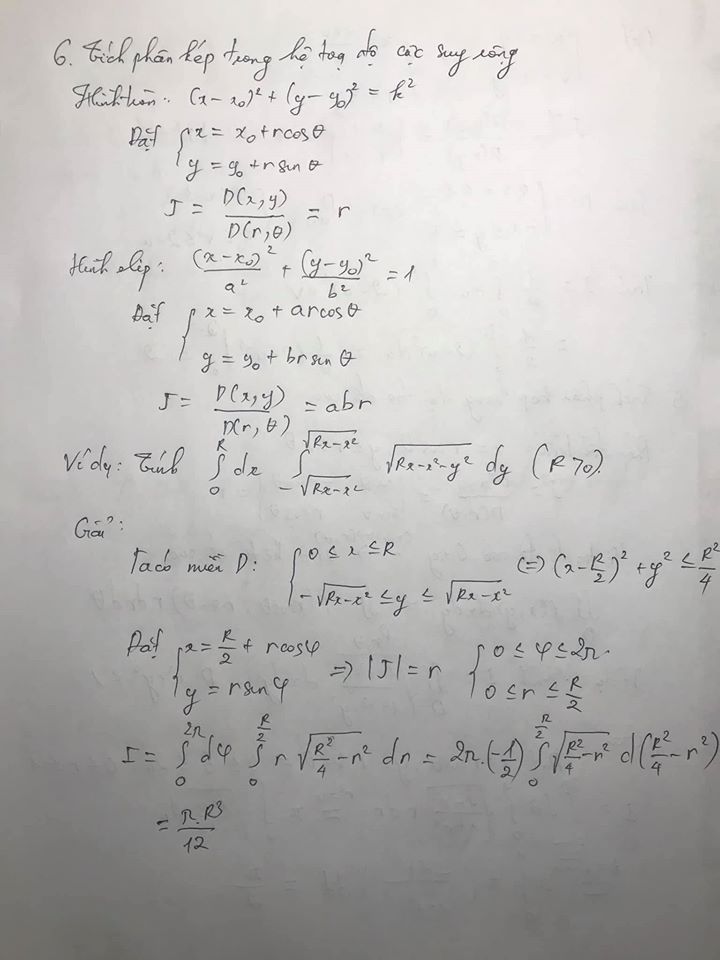 6. Tích phân kép trong hệ toạ độ cực suy rộng
Hình tròn: (x - x₀)² + (y - y₀)² = k²
Đặt { x = x₀ + rcosθ
y = y₀ + rsinθ
J = D(x, y) / D(r, θ) = r
Hình elip: (x - x₀)² / a² + (y - y₀)² / b² = 1
Đặt { x = x₀ + arcosθ
y = y₀ + brsinθ
J = D(x, y) / D(r, θ) = abr
Ví dụ: Tính ∫₀ᴿ dx ∫_{-√(Rx-x²)}^{√(Rx-x²)} √(Rx-x²-y²) dy (R>0).
Giải:
Ta có miền D: { 0 ≤ x ≤ R
-√(Rx-x²) ≤ y ≤ √(Rx-x²) (=) (x - R/2)² + y² ≤ R²/4
Đặt { x = R/2 + rcosφ
y = rsinφ => |J| = r { 0 ≤ φ ≤ 2π
0 ≤ r ≤ R/2
I = ∫₀^{2π} dφ ∫₀^{R/2} r √(R²/4 - r²) dr = 2π.(-1/2) ∫₀^{R/2} √(R²/4 - r²) d(R²/4 - r²)
= π.R³ / 12